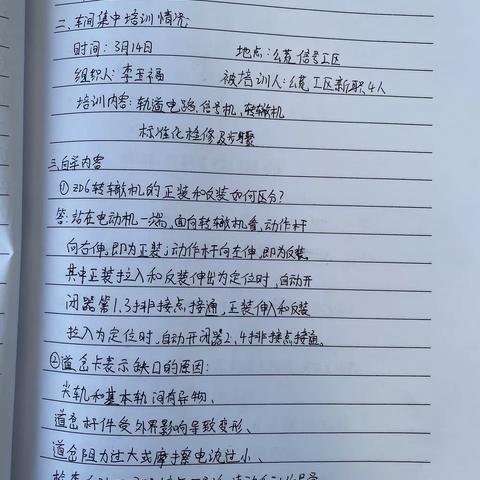 二、车间集中培训情况
时间：3月14日 地点：公茛信号工区
组织人：李玉福 被培训人：公茛工区新职4人
培训内容：轨道电路、信号机、转辙机
标准化检修及步骤
三、自学内容
①ZD6转辙机的正装和反装如何区分？
答：站在电动机一端，面向转辙机看，动作杆
向右伸，即为正装；动作杆向左伸，即为反装。
其中正装拉入和反装伸出为定位时，自动开
闭器第1.3排接点接通，正装伸入和反装
拉入为定位时，自动开闭器2.4排接点接通。
②道岔卡表示缺口的原因：
尖轨和基本轨间有异物、
道岔杆件受外界影响导致变形、
道岔阻力过大或摩擦电流过小、